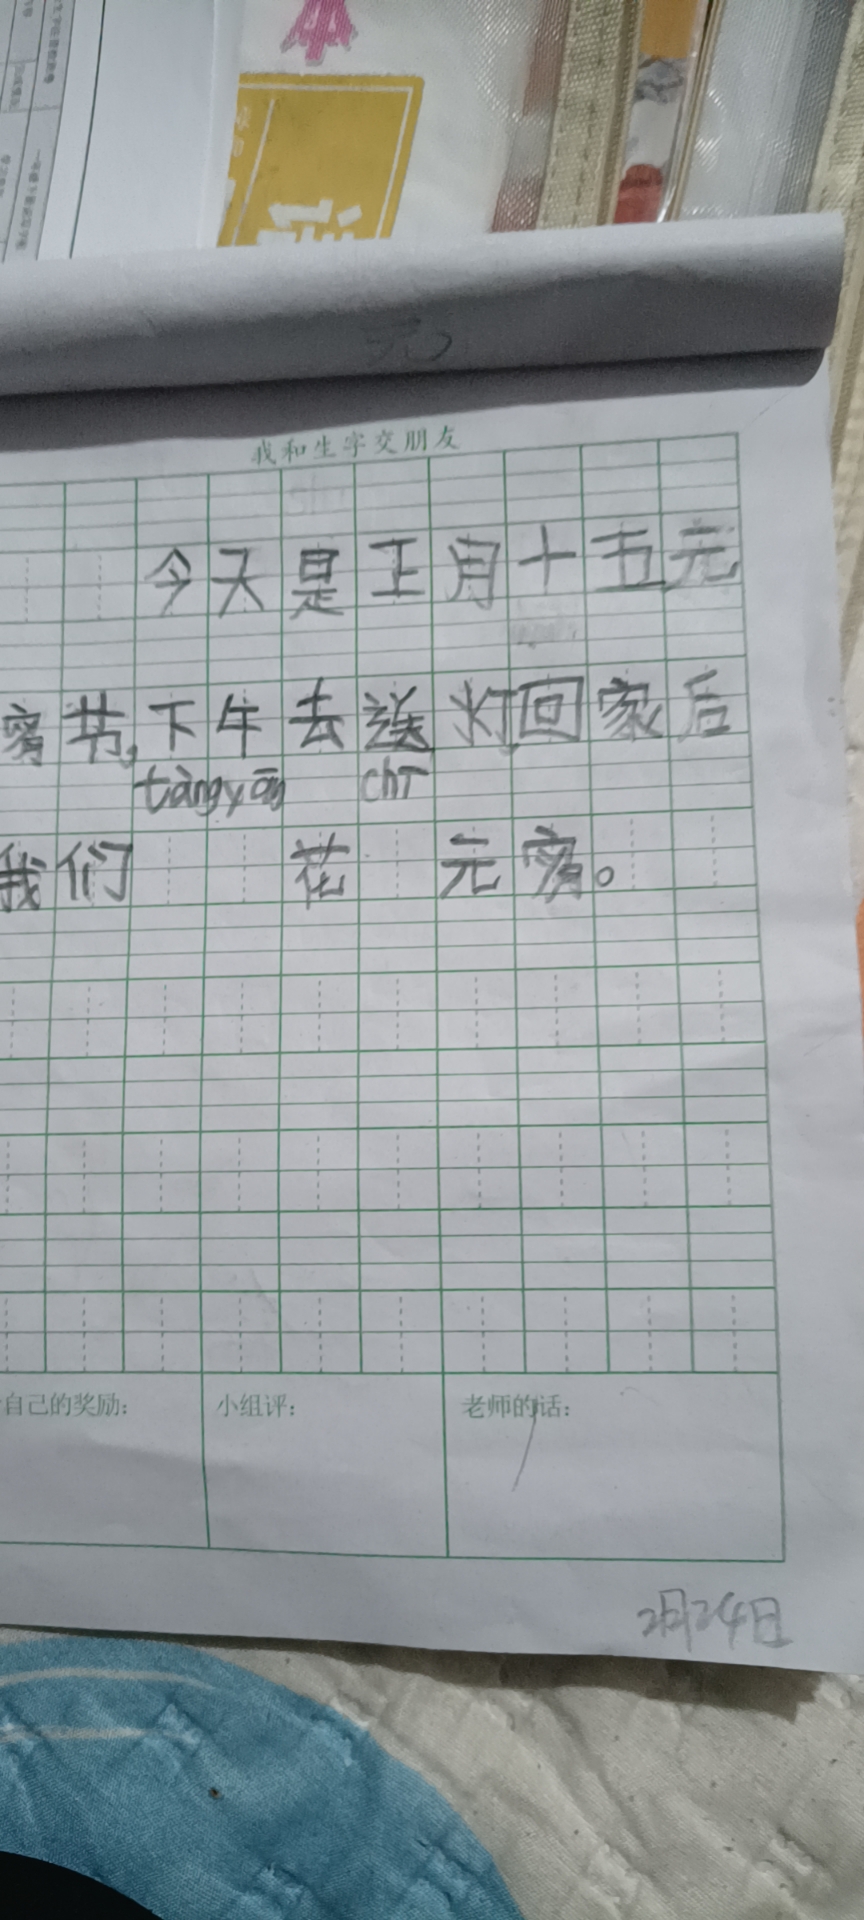 我和生字交朋友
今天是正月十五元
宵节,下午去送灯回家后
tàngyāng chī
我们 花 元宵。
自己的奖励:
小组评:
老师的话:
2月24日